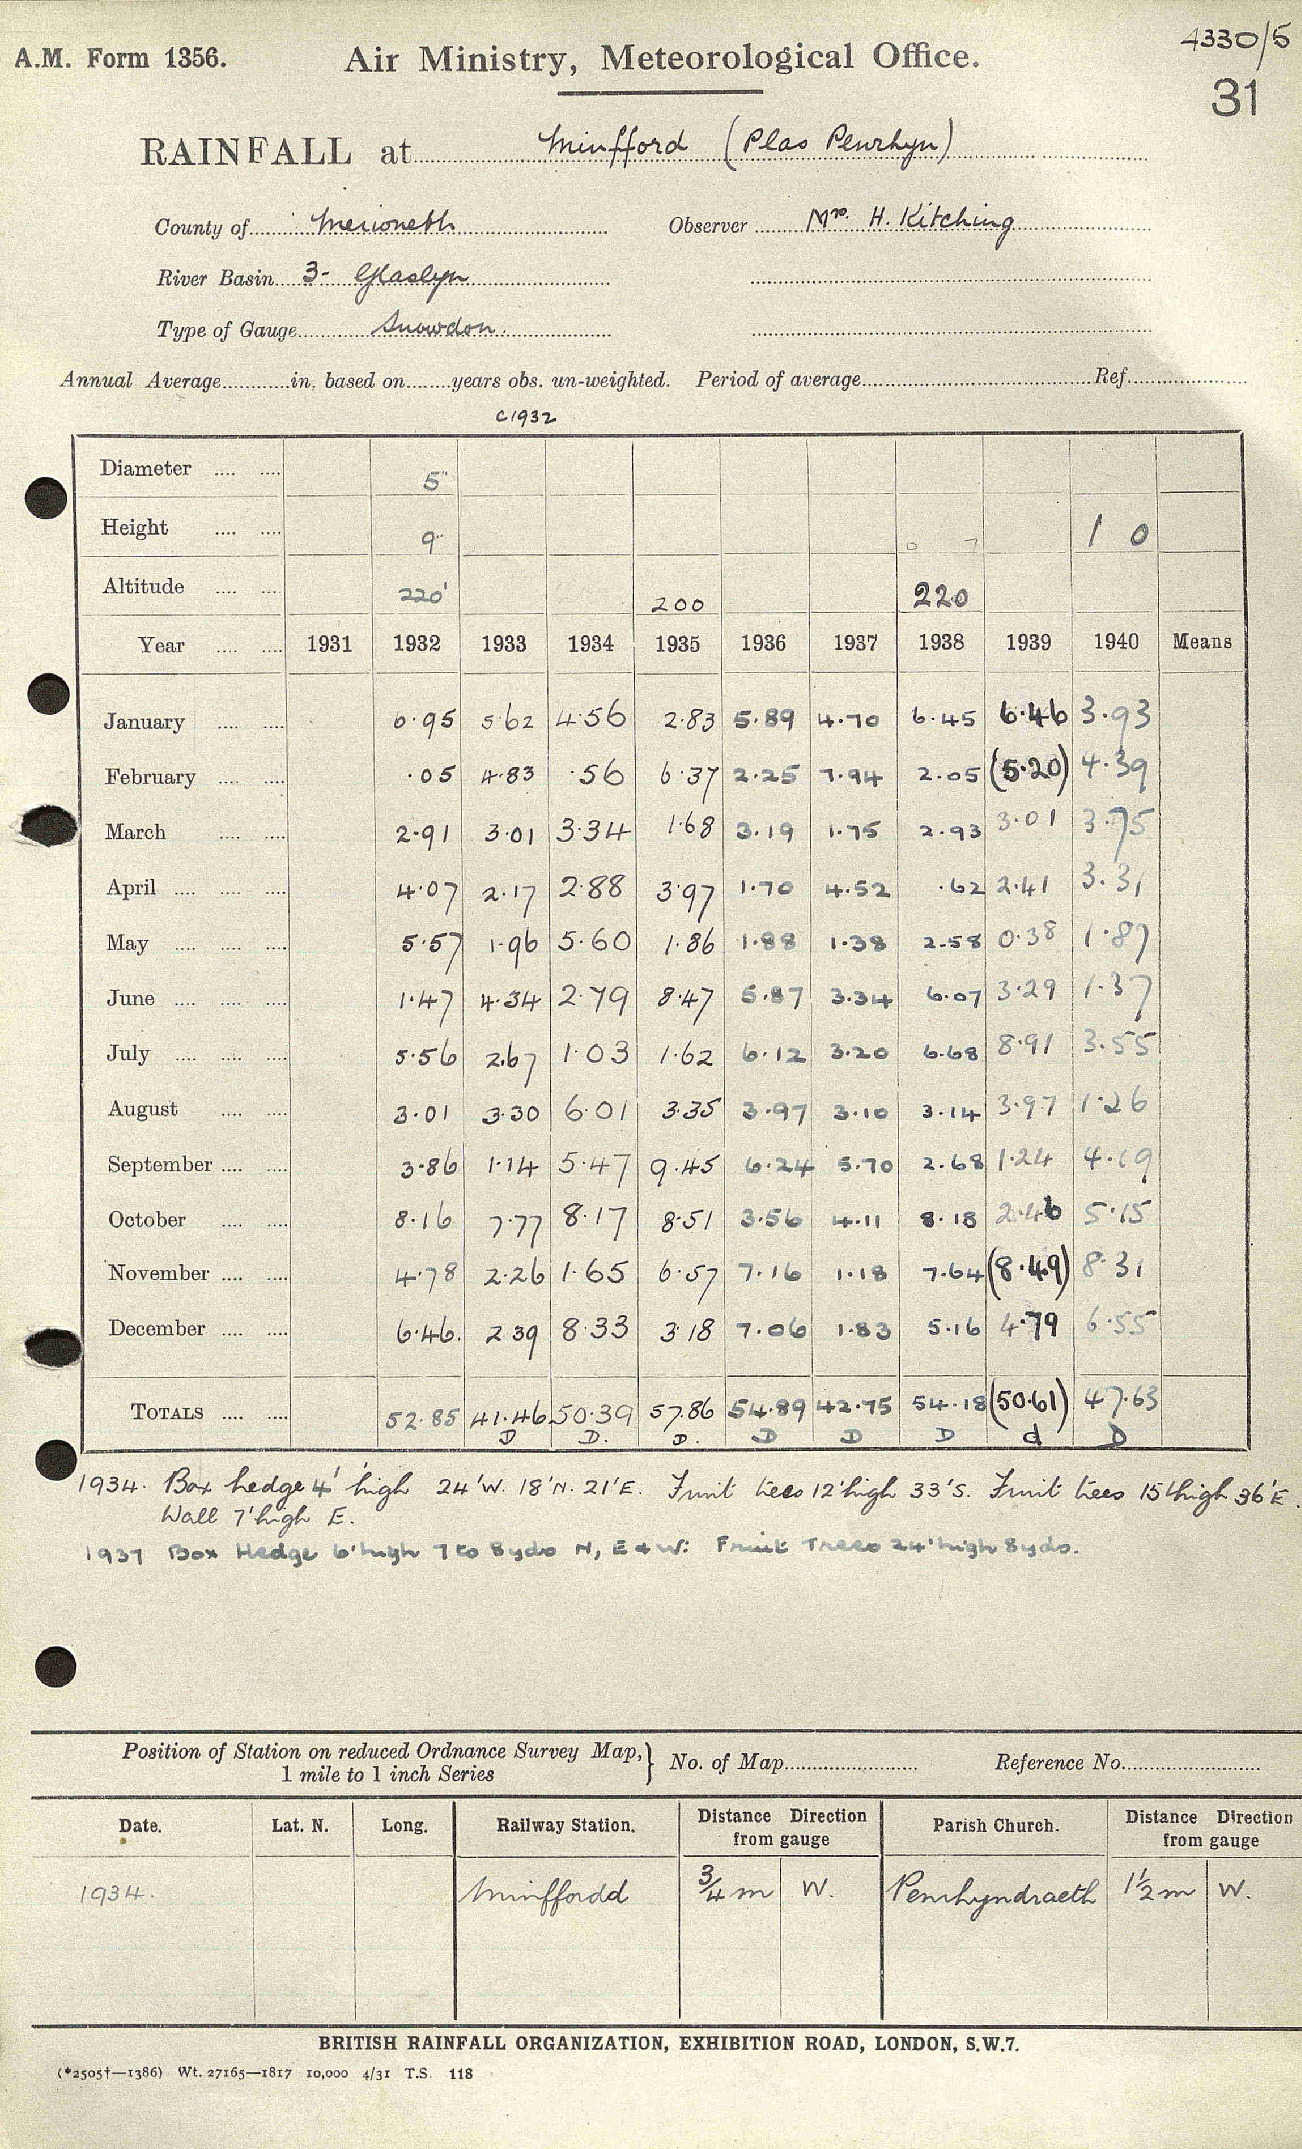 4330/5
A.M. Form 1356. Air Ministry, Meteorological Office.
31
RAINFALL at Minfford (Plas Penrhyn)
County of Merioneth Observer Mrs. H. Kitching
River Basin 3- Glaslyn
Type of Gauge Snowdon
Annual Average in. based on years obs. un-weighted. Period of average Ref.
c1932
Diameter 5"
Height 9" 0 7 1 0
Altitude 220' 200 220
Year 1931 1932 1933 1934 1935 1936 1937 1938 1939 1940 Means
January 6.95 5.62 4.56 2.83 5.89 4.70 6.45 6.46 3.93
February .05 4.83 .56 6.37 2.25 7.94 2.05 (5.20) 4.39
March 2.91 3.01 3.34 1.68 3.19 1.75 2.93 3.01 3.75
April 4.07 2.17 2.88 3.97 1.70 4.52 .62 2.41 3.31
May 5.57 1.96 5.60 1.86 1.88 1.38 2.58 0.38 1.87
June 1.47 4.34 2.79 8.47 5.87 3.34 6.07 3.29 1.37
July 5.56 2.67 1.03 1.62 6.12 3.20 6.68 8.91 3.55
August 3.01 3.30 6.01 3.35 3.97 3.10 3.14 3.97 1.26
September 3.86 1.14 5.47 9.45 6.24 5.70 2.68 1.24 4.19
October 8.16 7.77 8.17 8.51 3.56 4.11 8.18 2.46 5.15
November 4.78 2.26 1.65 6.57 7.16 1.18 7.64 (8.49) 8.31
December 6.46. 2.39 8.33 3.18 7.06 1.83 5.16 4.79 6.55
TOTALS 52.85 41.46 50.39 57.86 54.89 42.75 54.18 (50.61) 47.63
D D. D. D D D d D
1934. Box hedge 4' high 24'W. 18'N. 21'E. Fruit trees 12'high 33'S. Fruit trees 15'high 36'E.
Wall 7'high E.
1937 Box Hedge 6'high 7 to 8yds N, E & W: Fruit Trees 24'high 8yds.
Position of Station on reduced Ordnance Survey Map, } No. of Map Reference No.
1 mile to 1 inch Series
Date. Lat. N. Long. Railway Station. Distance Direction from gauge Parish Church. Distance Direction from gauge
1934. Minffordd 3/4 m W. Penrhyndraeth 1 1/2 m W.
BRITISH RAINFALL ORGANIZATION, EXHIBITION ROAD, LONDON, S.W.7.
(*2505†—1386) Wt. 27165—1817 10,000 4/31 T.S. 118